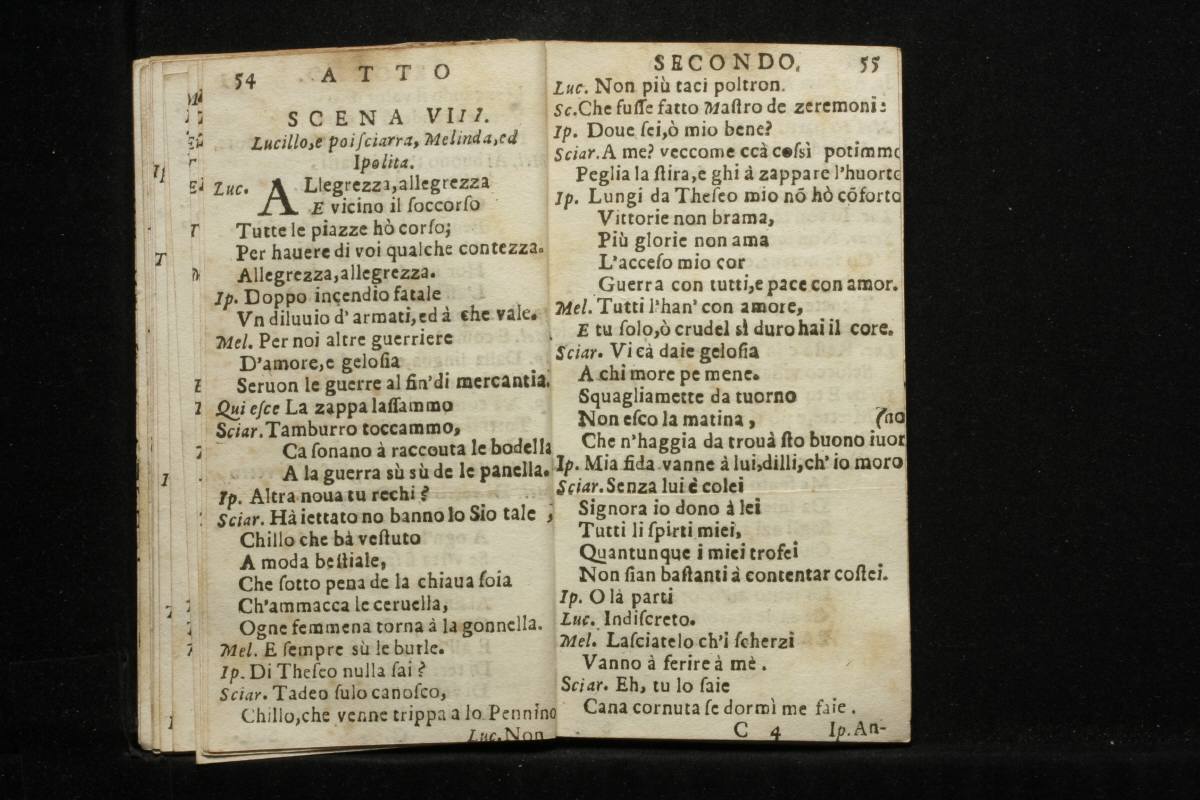 54 ATTO
SCENA VIII.
Lucillo,e poi ſciarra, Melinda,ed
Ipolita.
Luc. ALlegrezza,allegrezza
E vicino il ſoccorſo
Tutte le piazze hò corſo;
Per hauere di voi qualche contezza.
Allegrezza,allegrezza.
Ip. Doppo incendio fatale
Vn diluuio d'armati,ed à che vale.
Mel. Per noi altre guerriere
D'amore,e geloſia
Seruon le guerre al fin'di mercantia.
Qui eſce La zappa laſſammo
Sciar. Tamburro toccammo,
Ca ſonano à raccouta le bodella
A la guerra sù sù de le panella.
Ip. Altra noua tu rechi ?
Sciar. Hà iettato no banno lo Sio tale ;
Chillo che bà veſtuto
A moda beſtiale,
Che ſotto pena de la chiaua ſoia
Ch'ammacca le ceruella,
Ogne femmena torna à la gonnella.
Mel. E ſempre sù le burle.
Ip. Di Theſeo nulla ſai ?
Sciar. Tadeo ſulo canoſco,
Chillo,che venne trippa a lo Pennino
Luc. Non
SECONDO. 55
Luc. Non più taci poltron.
Sc. Che fuſſe fatto Maſtro de zeremoni:
Ip. Doue ſei,ò mio bene?
Sciar. A me? veccome ccà coſsì potimmo
Peglia la ſtira,e ghi à zappare l'huorto
Ip. Lungi da Theſeo mio nõ hò cõforto
Vittorie non brama,
Più glorie non ama
L'acceſo mio cor
Guerra con tutti,e pace con amor.
Mel. Tutti l'han' con amore,
E tu ſolo,ò crudel sì duro hai il core.
Sciar. Vi cà daie geloſia
A chi more pe mene.
Squagliamette da tuorno
Non eſco la matina , (no
Che n'haggia da trouà ſto buono iuor
Ip. Mia fida vanne à lui,dilli,ch'io moro
Sciar. Senza lui è colei
Signora io dono à lei
Tutti li ſpirti miei,
Quantunque i miei trofei
Non ſian baſtanti à contentar coſtei.
Ip. O là parti
Luc. Indiſcreto.
Mel. Laſciatelo ch'i ſcherzi
Vanno à ferire à mè .
Sciar. Eh, tu lo ſaie
Cana cornuta ſe dormì me faie .
C 4 Ip. An-